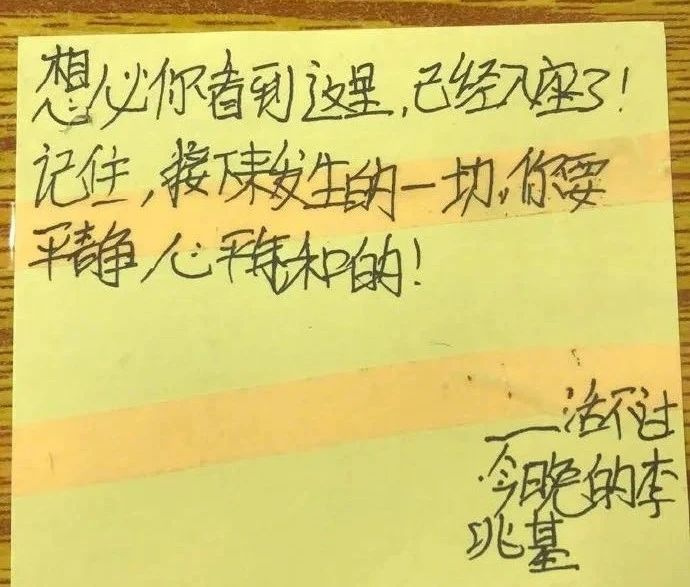 想必你看到这里，已经入座了！
记住，接下来发生的一切，你要
平静，心平气和的！
——活不过
今晚的李
兆基